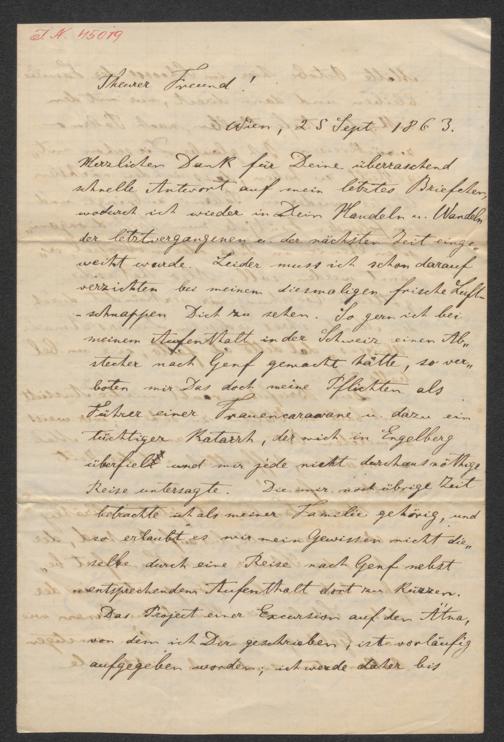 I. N. 45019
Theurer Freund!
Wien, 25 Sept. 1863.
Herzlichen Dank für Deine überraschend
schnelle Antwort auf mein letztes Briefchen,
wodurch ich wieder in Dein Handeln u. Wandeln
der letztvergangenen u. der nächsten Zeit einge-
weiht wurde. Leider muss ich schon darauf
verzichten bei meinem diesmaligen frische Luft-
-schnappen Dich zu sehen. So gern ich bei
meinem Aufenthalt in der Schweiz einen Ab-
stecher nach Genf gemacht hätte, so ver-
boten mir Das doch meine Pflichten als
Führer einer Frauencarawane u. dazu ein
tüchtiger Katarrh, der mich in Engelberg
überfiel und mir jede nicht durchaus nöthige
Reise untersagte. Die mir noch übrige Zeit
betrachte ich als meiner Familie gehörig, und
so erlaubt es mir mein Gewissen nicht die-
selbe durch eine Reise nach Genf nebst
entsprechendem Aufenthalt dort zu kürzen.
Das Project einer Excursion auf den Ätna,
von dem ich Dir geschrieben, ist vorläufig
aufgegeben worden; ich werde daher bis